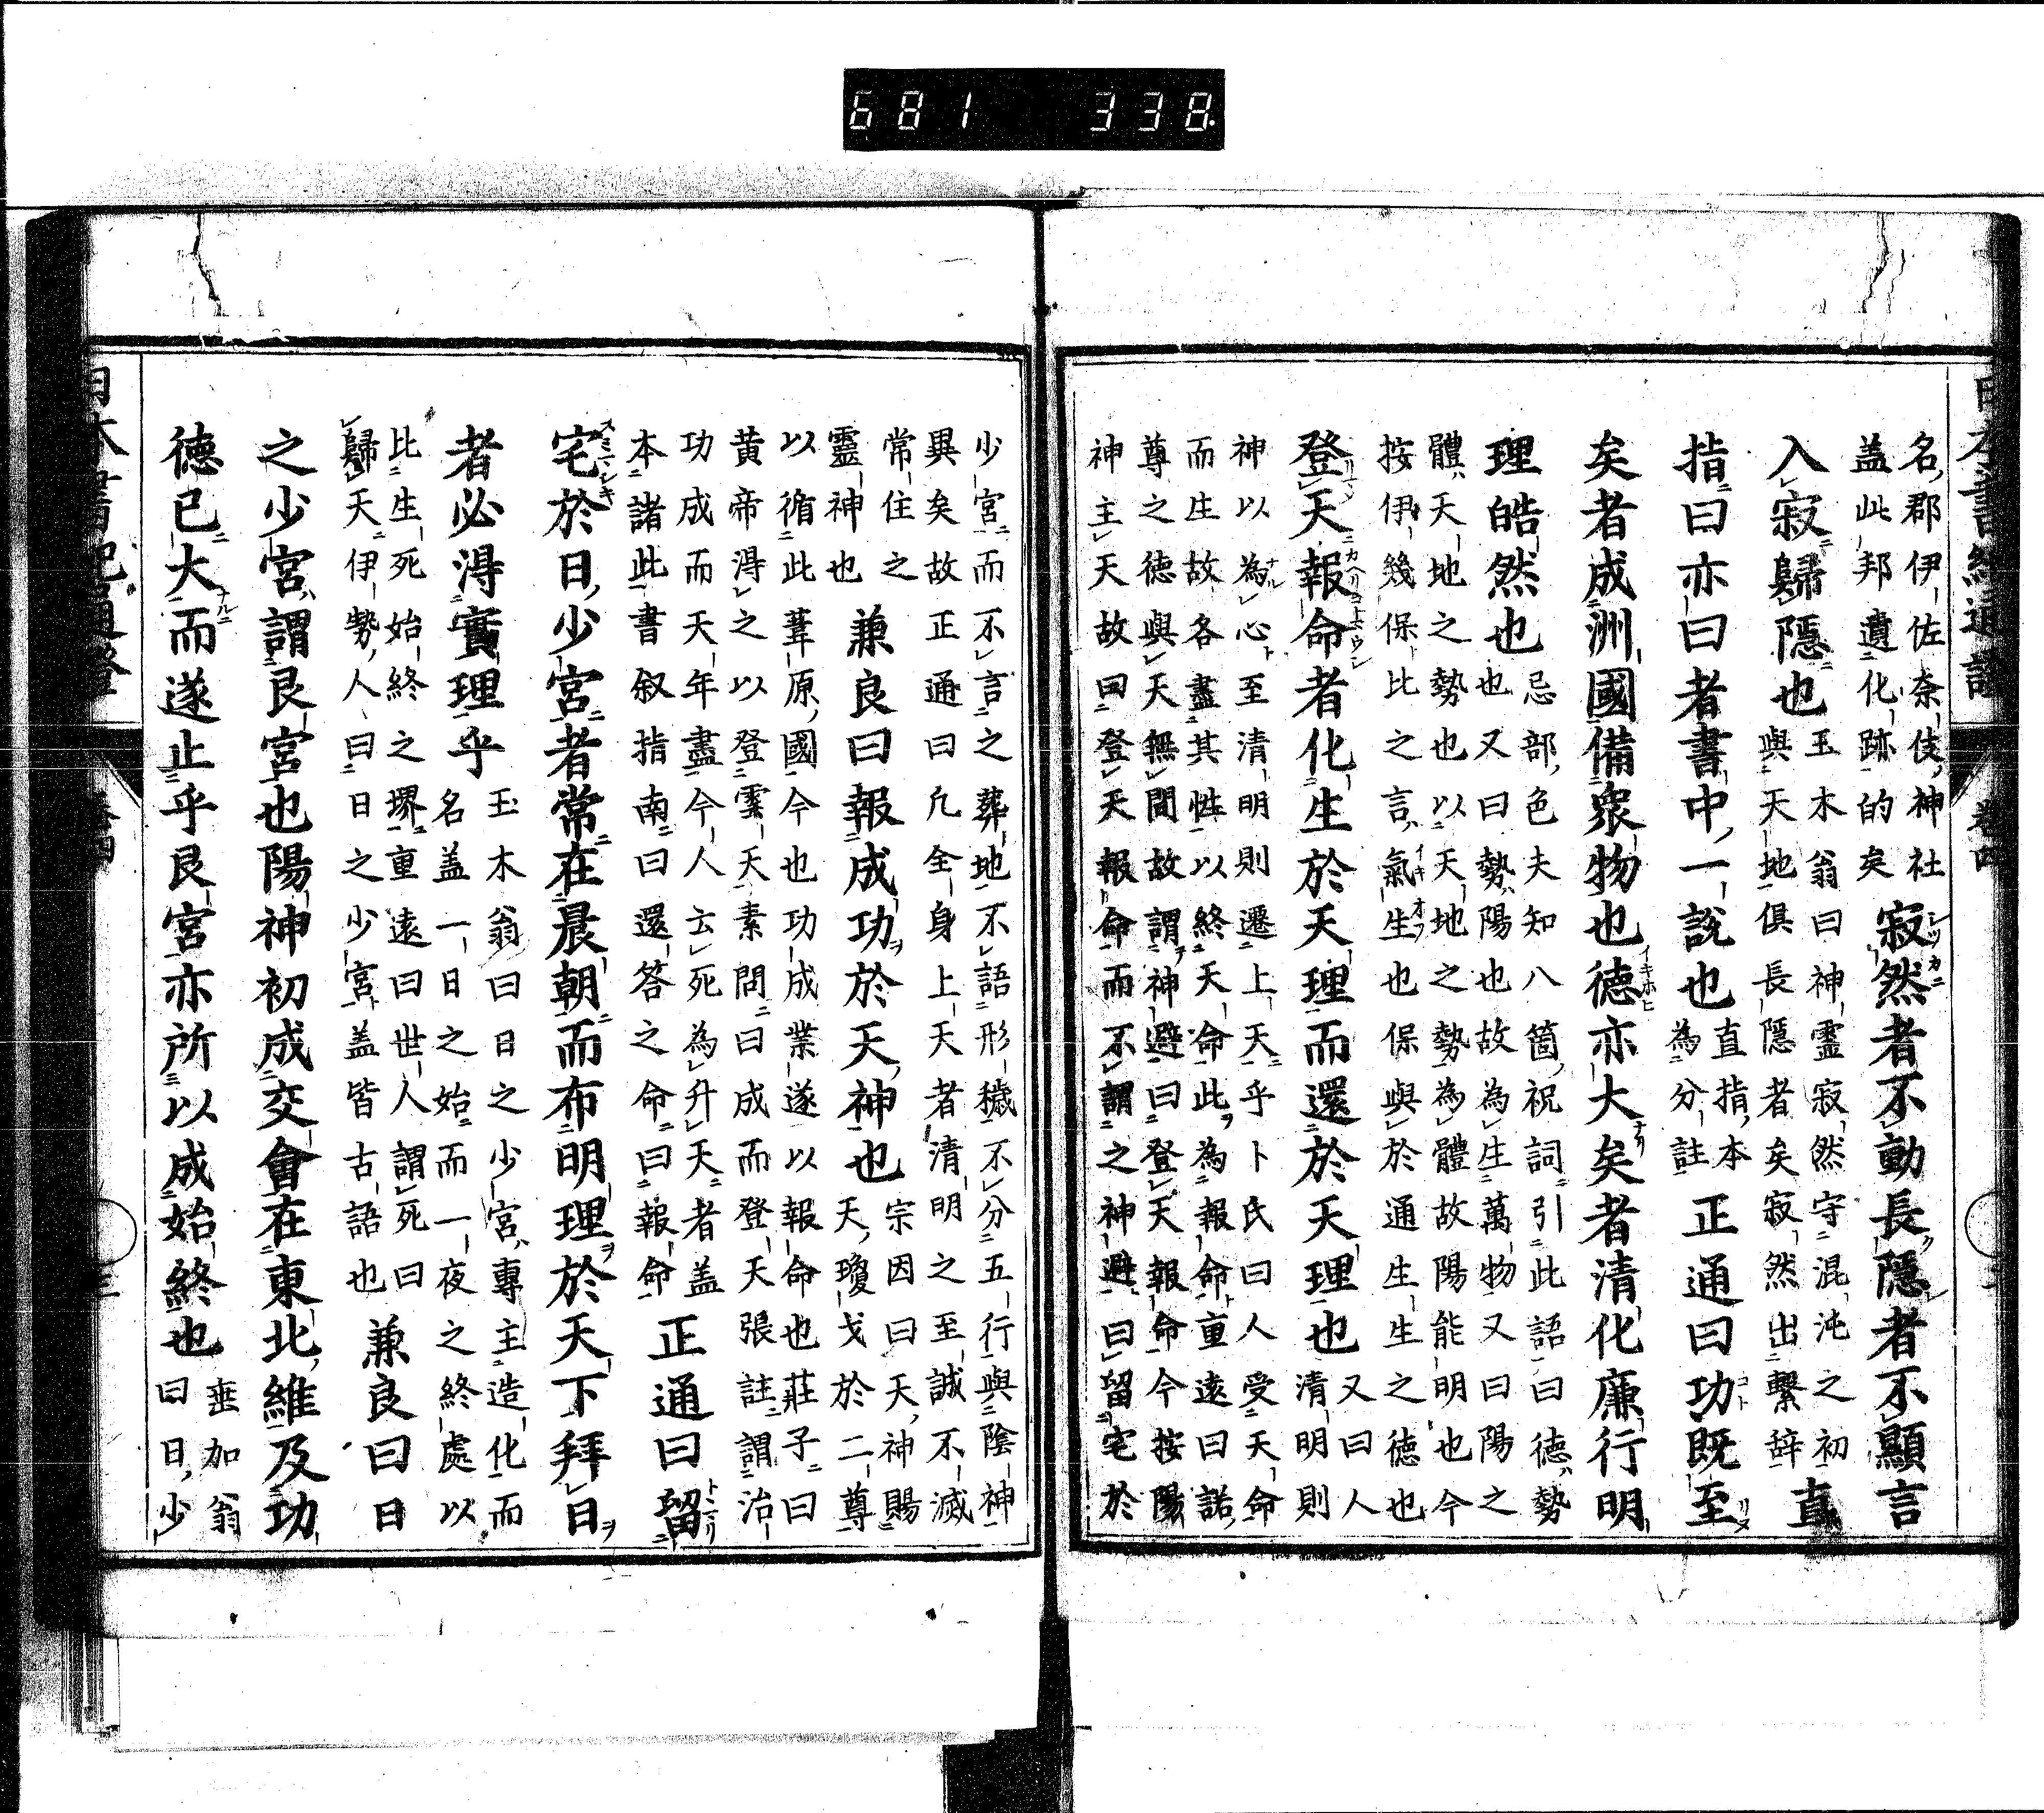 681 338
日本書紀通證 卷四 三
名郡伊佐奈伎神社
蓋此邦遺化跡的矣
寂然者不動長隱者不顯言
入寂歸隱也
玉木翁曰神靈寂然守混沌之初
與天地俱長隱者矣寂然出繫辞
直
指曰亦曰者書中一說也
直指本
為分註
正通曰功既至
矣者成洲國備衆物也德亦大矣者清化廉行明
理皓然也
忌部色夫知八箇祝詞引此語曰德勢
也又曰勢陽也故為生萬物又曰陽之
體天地之勢也以天地之勢為體故陽能明也今
按伊幾保比之言氣生也保與於通生生之德也
登天報命者化生於天理而還於天理也
又曰人
清明則
神以為心至清明則遷上天乎卜氏曰人受天命
而生故各盡其性以終天命此為報命重遠曰諾
尊之德與天無間故謂神避曰登天報命今按陽
神主天故曰登天報命而不謂之神避曰留宅於
少宮而不言之葬地不語形穢不分五行與陰神
異矣故正通曰凡全身上天者清明之至誠不滅
常住之
靈神也
兼良曰報成功於天神也
宗因曰天神賜
天瓊戈於二尊
以循此葦原國今也功成業遂以報命也莊子曰
黄帝得之以登雲天素問曰成而登天張註謂治
功成而天年盡今人云死為升天者蓋
本諸此書叙指南曰還答之命曰報命
正通曰留
宅於日少宮者常在晨朝而布明理於天下拜日
者必得實理乎
玉木翁曰日之少宮專主造化而
名蓋一日之始而一夜之終處以
比生死始終之堺重遠曰世人謂死曰
歸天伊勢人曰日之少宮蓋皆古語也
兼良曰日
之少宮謂艮宮也陽神初成交會在東北維及功
德已大而遂止乎艮宮亦所以成始終也
垂加翁
曰日少
日本書紀通證 卷四 三